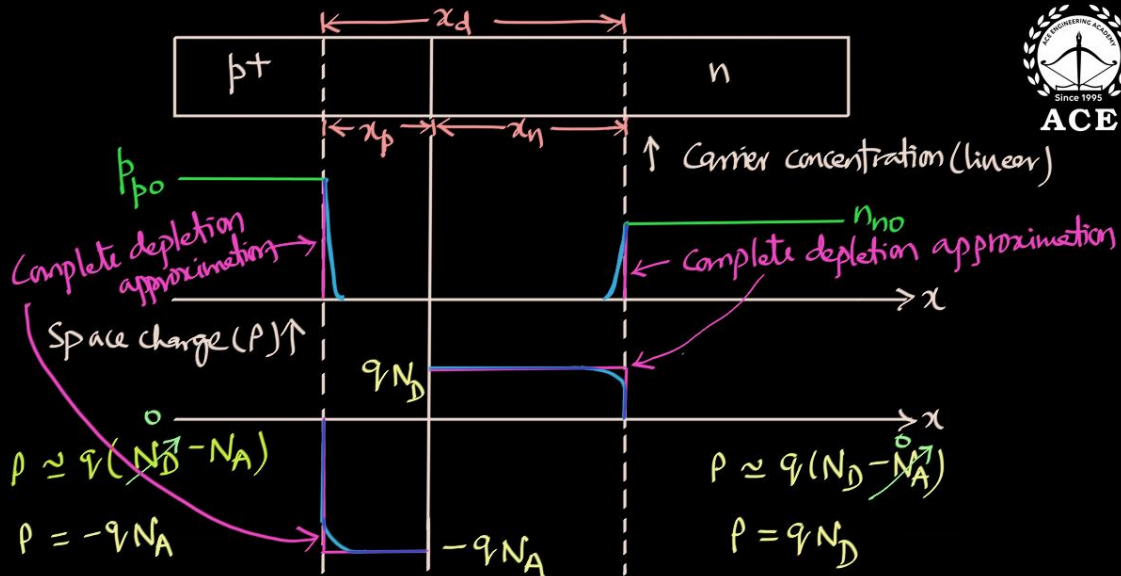 x_d
p+
n
x_p
x_n
ACE ENGINEERING ACADEMY
Since 1995
ACE
↑ Carrier concentration (linear)
p_po
n_no
Complete depletion
approximation
Complete depletion approximation
x
Space charge (ρ) ↑
qN_D
0
x
ρ ≃ q(N_D - N_A)
0
ρ ≃ q(N_D - N_A)
ρ = -qN_A
-qN_A
ρ = qN_D